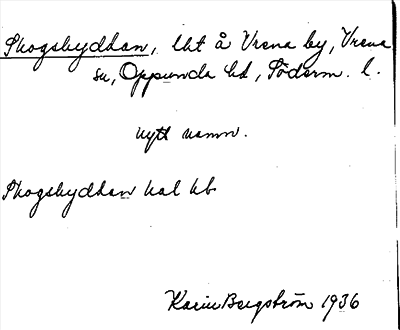 Skogshyddan, lht å Vrena by, Vrena
sn, Oppunda hd, Söderm. l.
nytt namn.
Skogshyddan hal hb
Karin Bergström 1936